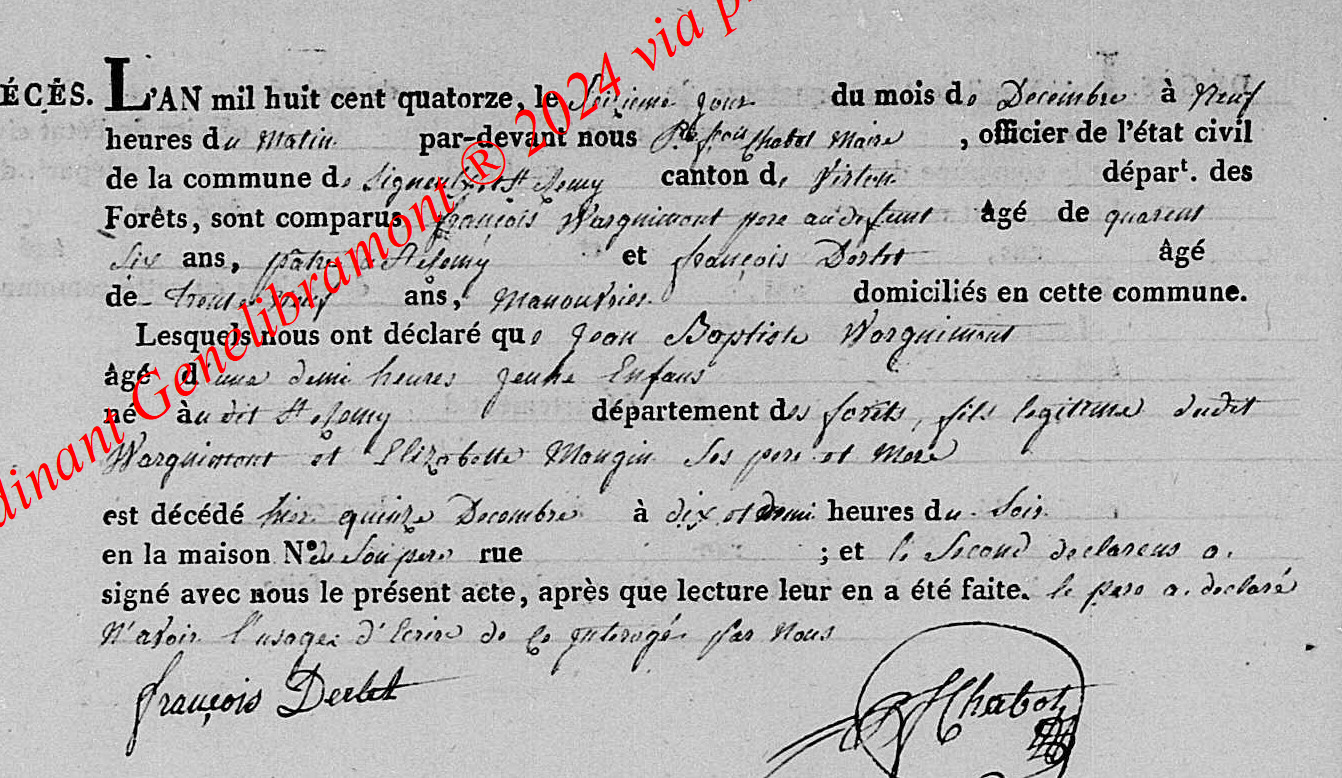 ÉCÈS. L'AN mil huit cent quatorze, le Seizieme jour du mois de Decembre à Neuf
heures du Matin par-devant nous Chabot Maire , officier de l'état civil
de la commune de St Remy canton de Virton départ. des
Forêts, sont comparus françois Warquimont pere au defunt âgé de quarent
Six ans, pâtre a St Remy et françois Derlet âgé
de trente neuf ans, Manouvrier domiciliés en cette commune.
Lesquels nous ont déclaré que Jean Baptiste Warquimont
âgé d'une demi heures jeune Enfans
né àudit St Remy département des forêts, fils legitime dudit
Warquimont et Elizabette Mangin Ses pere et Mere
est décédé hier quinze Decembre à dix et demi heures du Soir
en la maison N° de Son pere rue ; et le Second declarens a
signé avec nous le présent acte, après que lecture leur en a été faite. le pere a declaré
N'avoir l'usage d'Ecrire de Ce interogé par Nous
françois Derlet
Chabot
dinant Genelibramont ® 2024 via